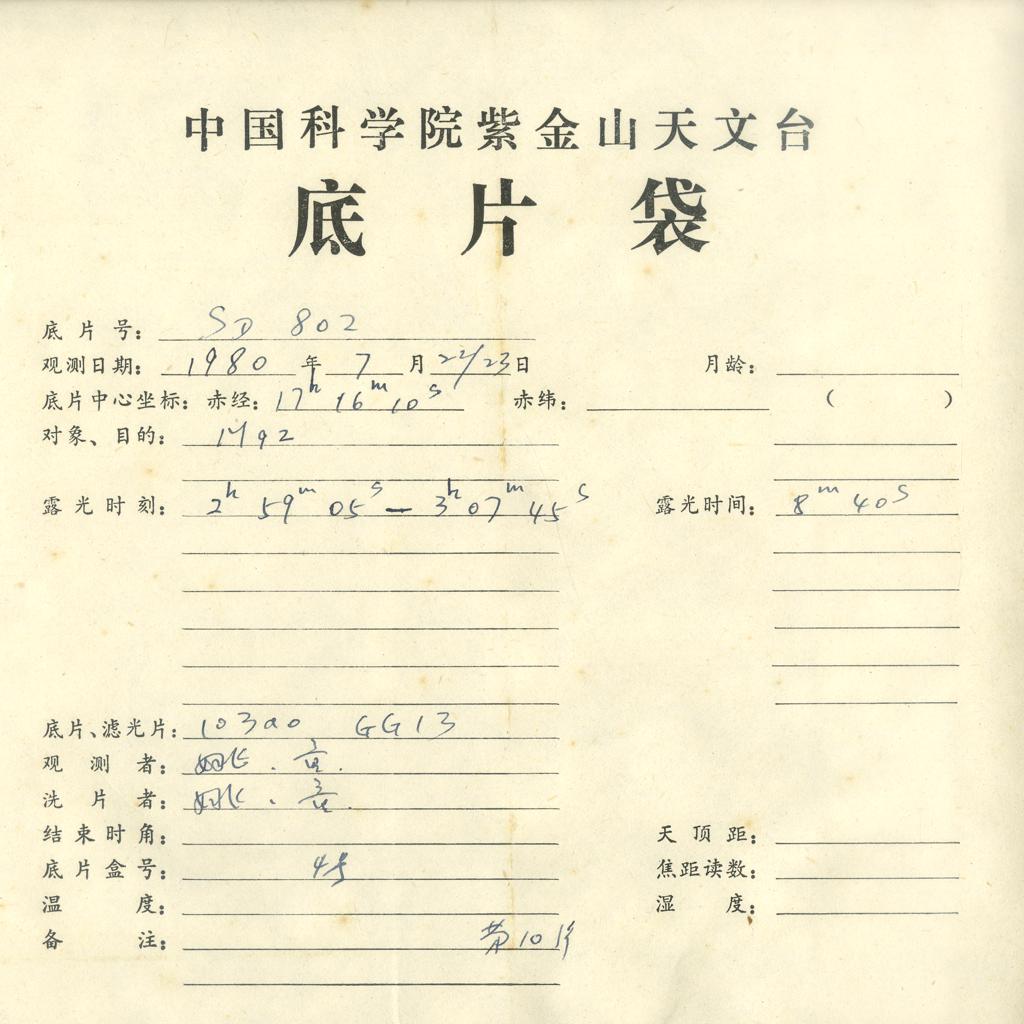 中国科学院紫金山天文台
底片袋
底片号: SD 802
观测日期: 1980 年 7 月 22/23 日 月龄:
底片中心坐标: 赤经: 17h 16m 10s 赤纬: ( )
对象、目的: M92
露光时刻: 2h 59m 05s — 3h 07m 45s 露光时间: 8m 40s
底片、滤光片: 103aO GG13
观测者: 姚.
洗片者: 姚.
结束时角: 天顶距:
底片盒号: 4号 焦距读数:
温度: 湿度:
备注: 10